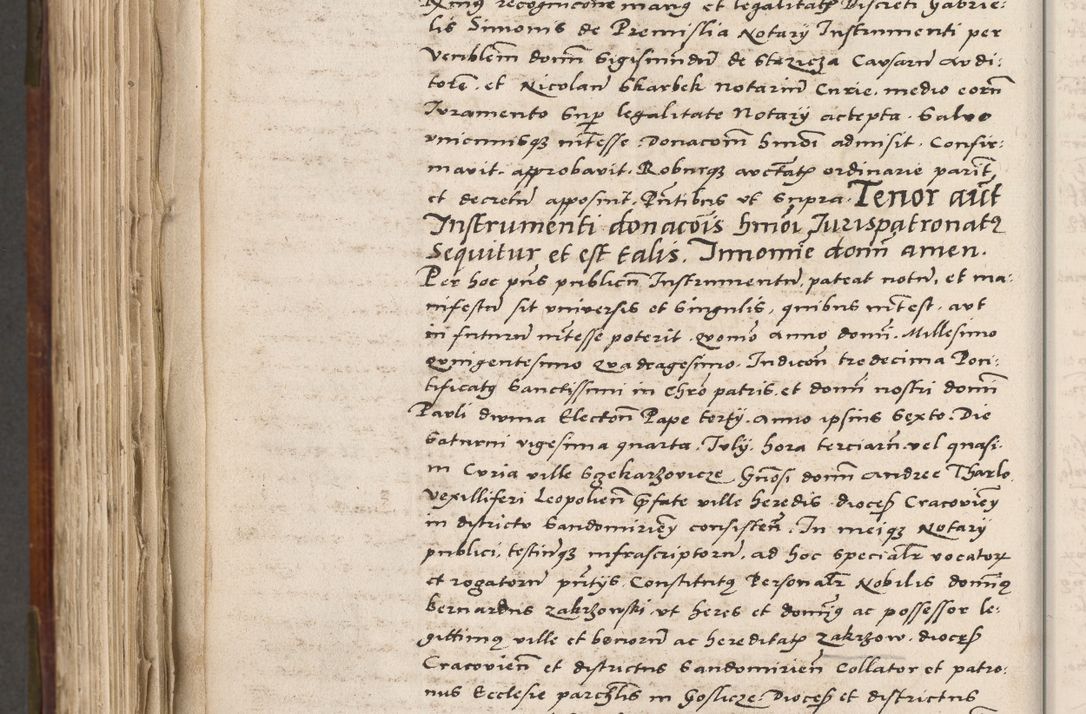 Rmus recognicōne manus et legalitatꝭ Discreti Gabrie-
lis Simonis de Premislia Notarÿ Instrumenti per
venblem domn Sigismundum de Stezicza Causarum Audi:
torē. et Nicolaum Skarbek Notarium Curie. medio eorum
Juramento Sup legalitate Notarÿ accepta. Salvo
unicuiusqꝫ intēsse. Donacōem hmōi admisit. Confir:
mavit. approbavit. Roburqꝫ auctātꝭ ordinarie pariter
et decretum apposuit. Pntibus ut supra. Tenor aūt
Instrumenti donacōis hmōi Jurispatronatus
Sequitur et est talis. In nomine domni amen.
Per hoc pns publicum Instrumentum, pateat notum, et ma:
nifestum sit universis et singulis, quibus intest. aut
in futurum intēsse poterit. quomō Anno domni. Millesimo
quingentesimo quadragesimo. Indicōn tredecima Pon:
tificatus Sanctissimi in Chro patris et domni nostri domni
Pauli divina Electōn Pape tertÿ. Anno ipsius Sexto. Die
Saturni vigesima quarta. Julÿ. hora terciarum vel quasi.
in Curia ville Szekarzovicze Gnōsi domni Andree Tharlo
vexilliferi Leopoliēn pfate ville heredis. dioces Cracovieņ
in districtu Sandomirieņ consisteñ. In meiqꝫ Notarÿ
publici, testiumqꝫ infrascriptorum, ad hoc specialr vocatorꝝ
et rogatorum pntys Constitutus Personalr Nobilis domnus
bernardus zakrzowski ut heres et domnus ac possessor le:
gittimus ville et bonorum ac hereditatꝭ zakrzow. dioces
Cracovieñ et districtus Sandomirieñ Collator et patro:
nus Ecclesie parchlis in Goslicze Dioces et districtus